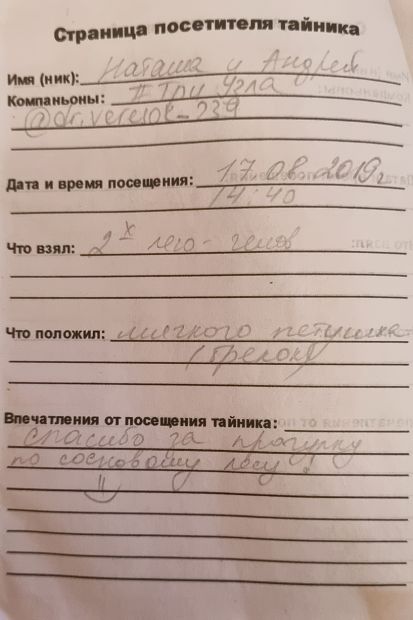 Страница посетителя тайника
Имя (ник): Наташа и Андрей
Компаньоны: # Три Узла
@dr.veresk_239
Дата и время посещения: 17.08.2019г
14:40
Что взял: 2х лего-
Что положил: мягкого петушка
(брелок)
Впечатления от посещения тайника:
спасибо за прогулку
по сосновому лесу!